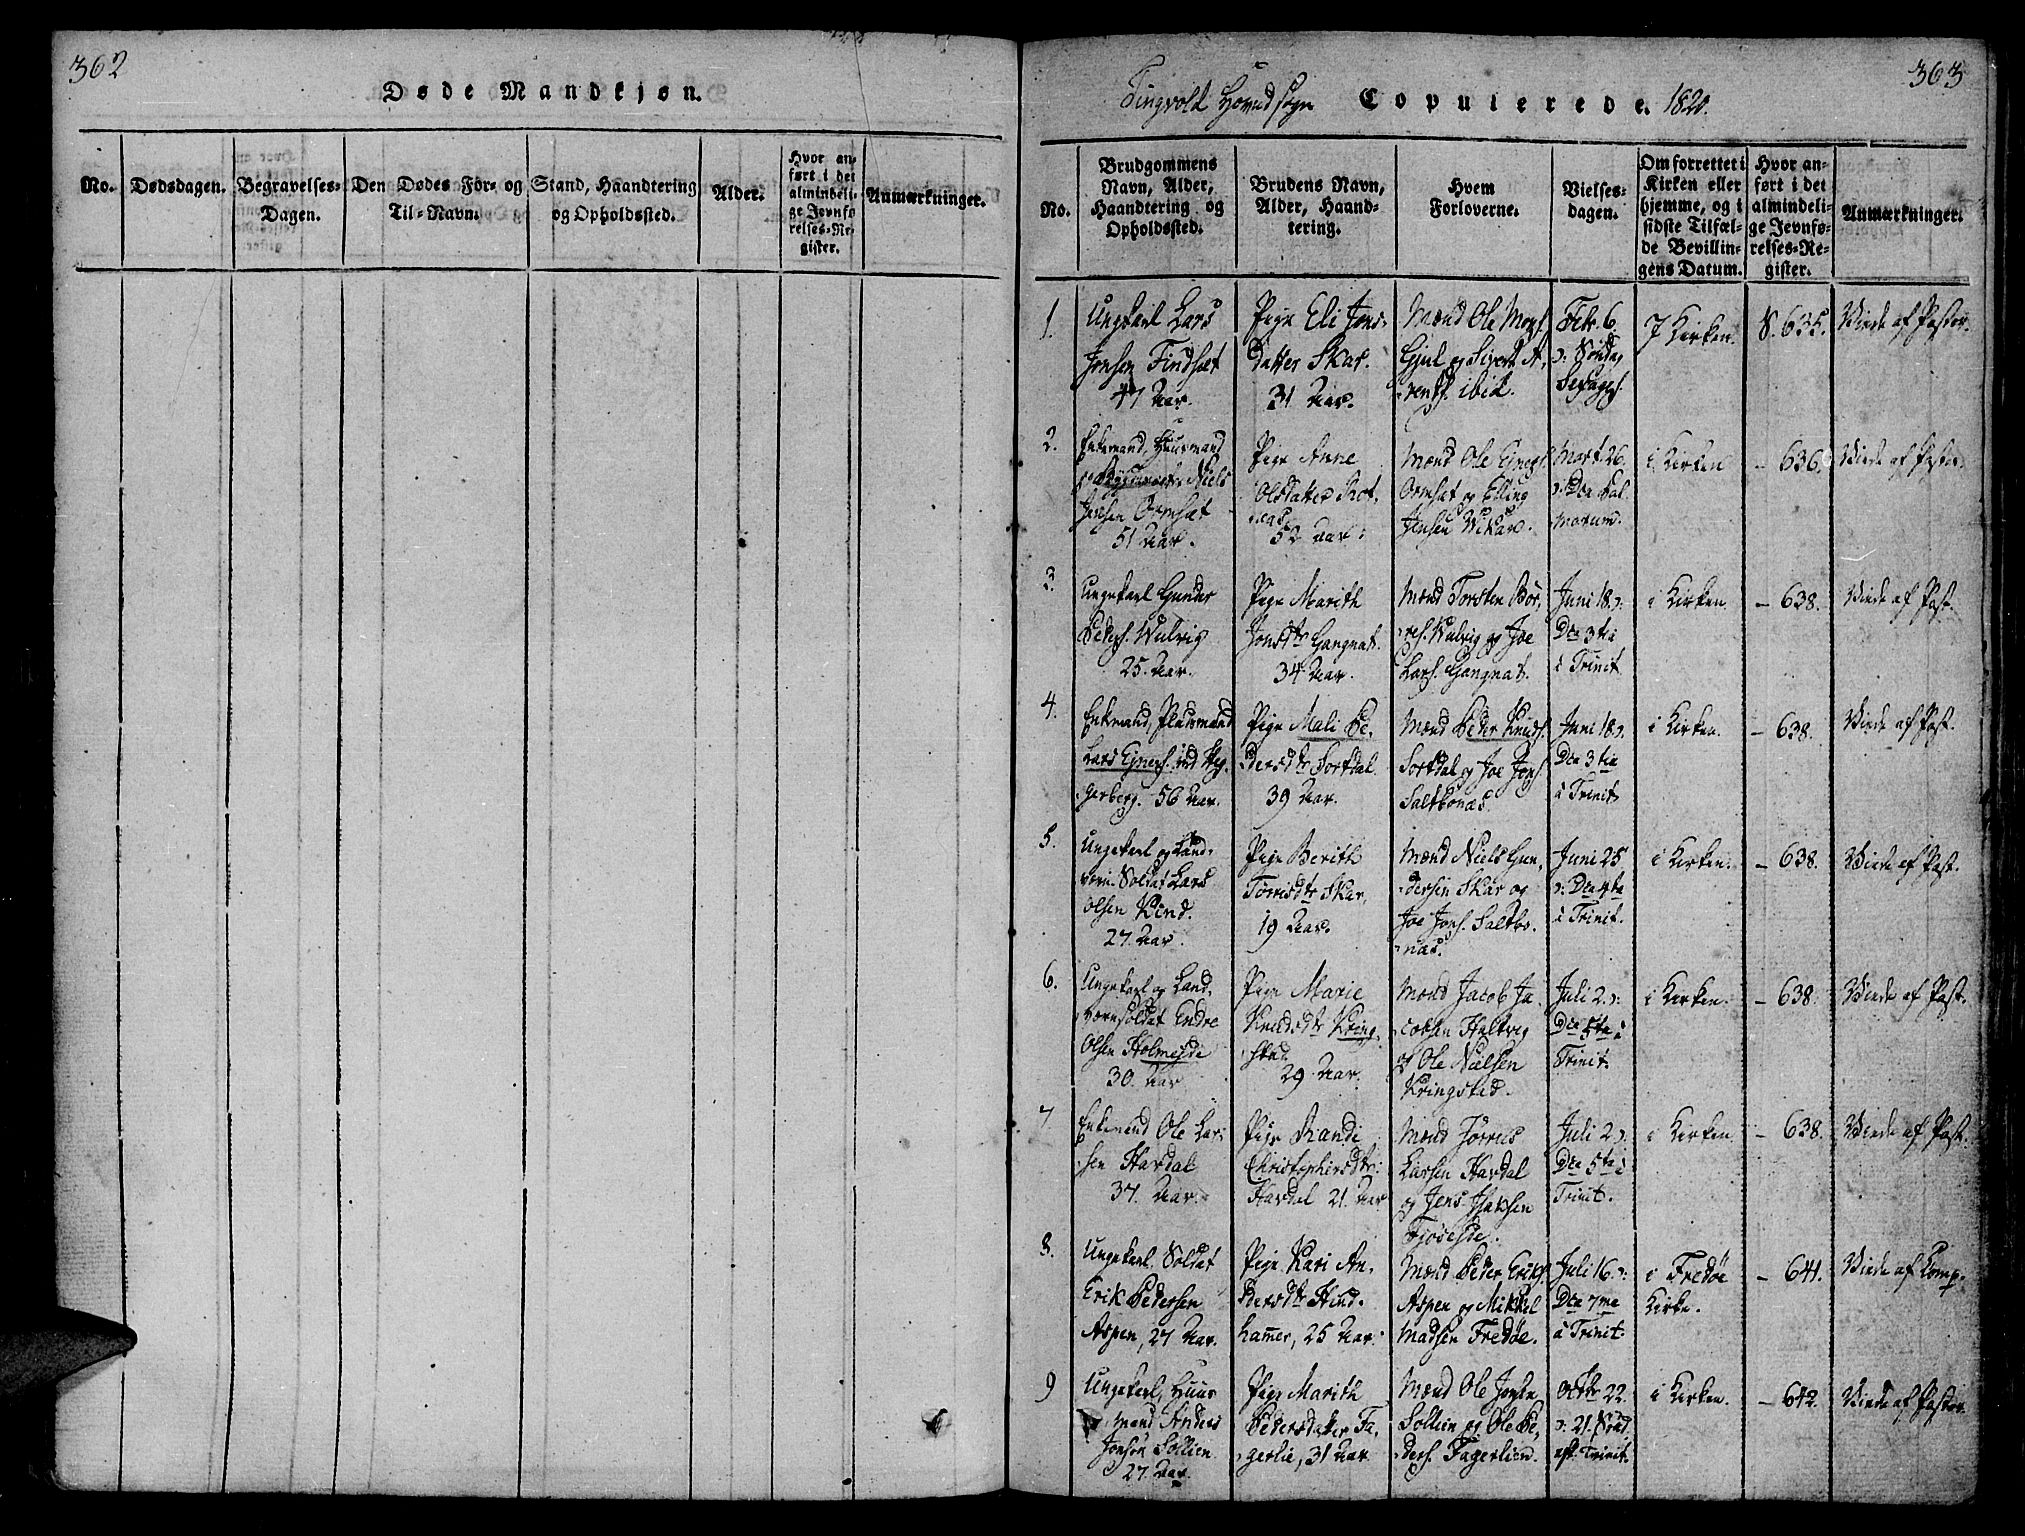 362
Døde Mandkjøn.
No.
Dødsdagen.
Begravelses-
Dagen.
Den Dødes For- og
Til-Navn.
Stand, Haandtering
og Opholdssted.
Alder.
Hvor an-
ført i det
almindeli-
ge Jevnfø
relses-Re-
gister.
Anmærkninger.
363
Tingvold Hovedsogn Copulerede. 1820.
No.
Brudgommens
Navn, Alder,
Haandtering og
Opholdssted.
Brudens Navn,
Alder, Haand-
tering.
Hvem
Forloverne.
Vielses-
dagen.
Om forrettet i
Kirken eller
hjemme, og i
sidste Tilfæl-
de Bevillin-
gens Datum.
Hvor an-
ført i det
almindeli-
ge Jevnfø-
relses-Re-
gister.
Anmærkninger.
1.
Ungkarl Lars
Jonsen Findset
47 Aar.
Pige Eli Jons-
datter Skar.
31 Aar.
Mænd Ole Mons.
Gjul og Sivert A-
rents. ibid.
Febr. 6.
ɔ: Søndag
Sexages.
I Kirken.
S. 635.
Viede af Pastor.
2.
Enkemand, Huusmand
Niels
Jensen Ormset
51 Aar.
Pige Anne
Olsdatter Rot-
næs
52 Aar.
Mænd Ole Ejnes.
Ormset og Elling
Jensen Wikan.
Mart. 26.
ɔ: Dca Pal-
marum.
i Kirken
- 636.
Viede af Pastor.
3.
Ungekarl Gunder
Peders. Wulvig
25. Aar.
Pige Marith
Jonsdtr Gangnat.
34 Aar.
Mænd Torsten Bør-
res. Wulvig og Joe
Lars. Gangnat.
Juni 18. ɔ:
Dca 3tia
à Trinit
i Kirken.
- 638.
Viede af Past.
4.
Enkemand, Pladsmand
Lars Ejners. ind Heg-
gerberg. 56 Aar.
Pige Mali Pe-
dersdtr Sortdal.
39 Aar.
Mænd Peder Knuds.
Sortdal og Joe Jons.
Saltbonæs.
Juni 18 ɔ.
Dca 3tia
à Trinit
i Kirken.
- 638.
Viede af Past.
5.
Ungekarl og Land-
værn-Soldat Lars
Olsen Kind.
27. Aar.
Pige Berith
Tørrisdtr Skar,
19 Aar.
Mænd Niels Gun-
dersen Skar og
Joe Jons. Saltbo-
næs.
Juni 25
ɔ: Dca 4ta
à Trinit.
i Kirken.
- 638.
Viede af Past.
6.
Ungekarl og Land-
værnsoldat Endre
Olsen Holmeide
30. Aar
Pige Marie
Knudsdtr Kring-
stad.
29 Aar.
Mænd Jacob Ja-
cobsen Haltvig
og Ole Nielsen
Kringstad.
Juli 2. ɔ:
Dca 5ta à
Trinit.
i Kirken.
- 638.
Viede af Past.
7.
Enkemand Ole Lar-
sen Hardal
37. Aar.
Pige Randi
Christophersdtr:
Hardal 21. Aar
Mænd Jørris
Larsen Hardal
og Jens
Fjøseide.
Juli 2. ɔ:
Dca 5ta à
Trinit.
i Kirken
- 638.
Viede af Past.
8.
Ungekarl. Soldat
Erik Pedersen
Aspen, 27 Aar.
Pige Kari An-
dersdtr Hind-
hamer, 25 Aar.
Mænd Peder Eriks.
Aspen og Mikkel
Madsen Fredøe.
Juli 16. ɔ:
Dca 7me
à Trinit.
i Fredøe
Kirke.
- 641.
Viede af Comp.
9
Ungekarl, Huus-
mand Anders
Jonsøn Sollien
27. Aar.
Pige Marith
Pedersdatter Fa-
gerlie, 31 Aar
Mænd Ole
Sollien og Ole Pe-
ders. Fagerlien.
Octbr 22.
ɔ: 21. Sønd.
eft. Trinit.
i Kirken.
- 642.
Viede af Pastor.